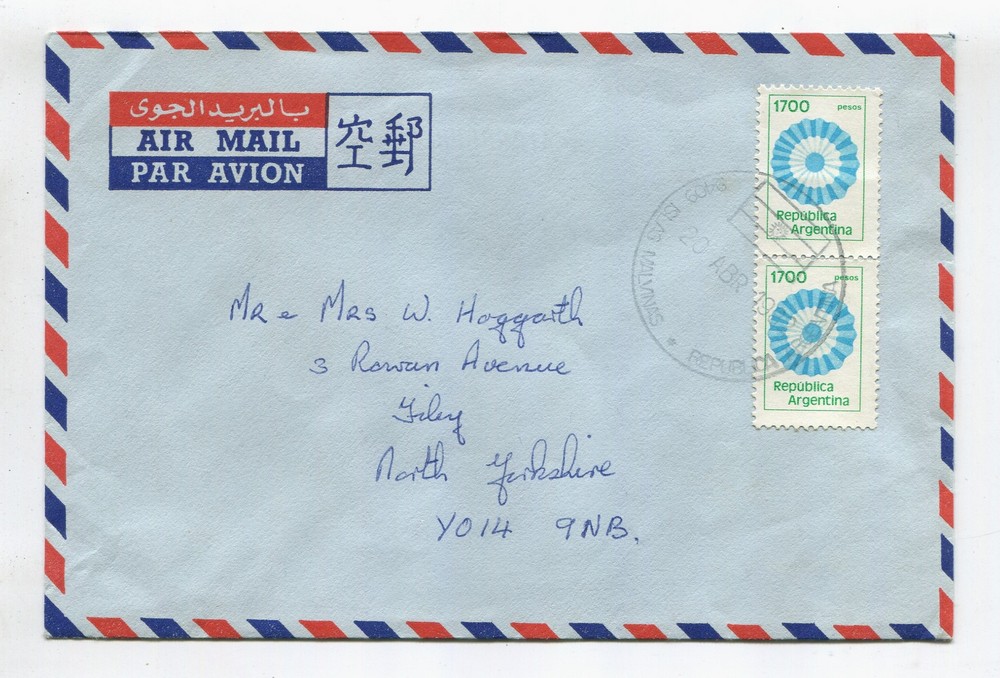 بالبريد الجوى
AIR MAIL
PAR AVION
空郵
1700 pesos
República
Argentina
ISLAS MALVINAS
20 ABR 19
REPUBLICA
1700 pesos
República
Argentina
Mr e Mrs W. Hoggarth
3 Rowan Avenue
Filey
North Yorkshire
YO14 9NB.